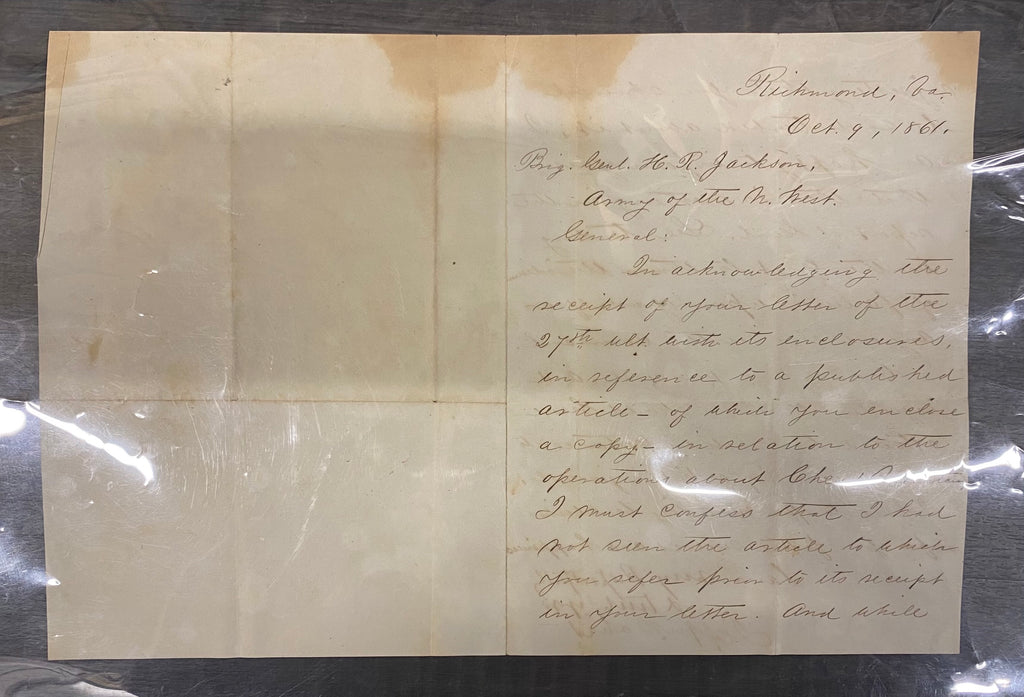 Richmond, Va.
Oct. 9, 1861.
Brig. Genl. H. R. Jackson,
Army of the N. West.
General:
In acknowledging the
receipt of your letter of the
27th ult. with its enclosures,
in reference to a published
article – of which you enclose
a copy – in relation to the
operations about
I must confess that I had
not seen the article to which
you refer prior to its receipt
in your letter. And while